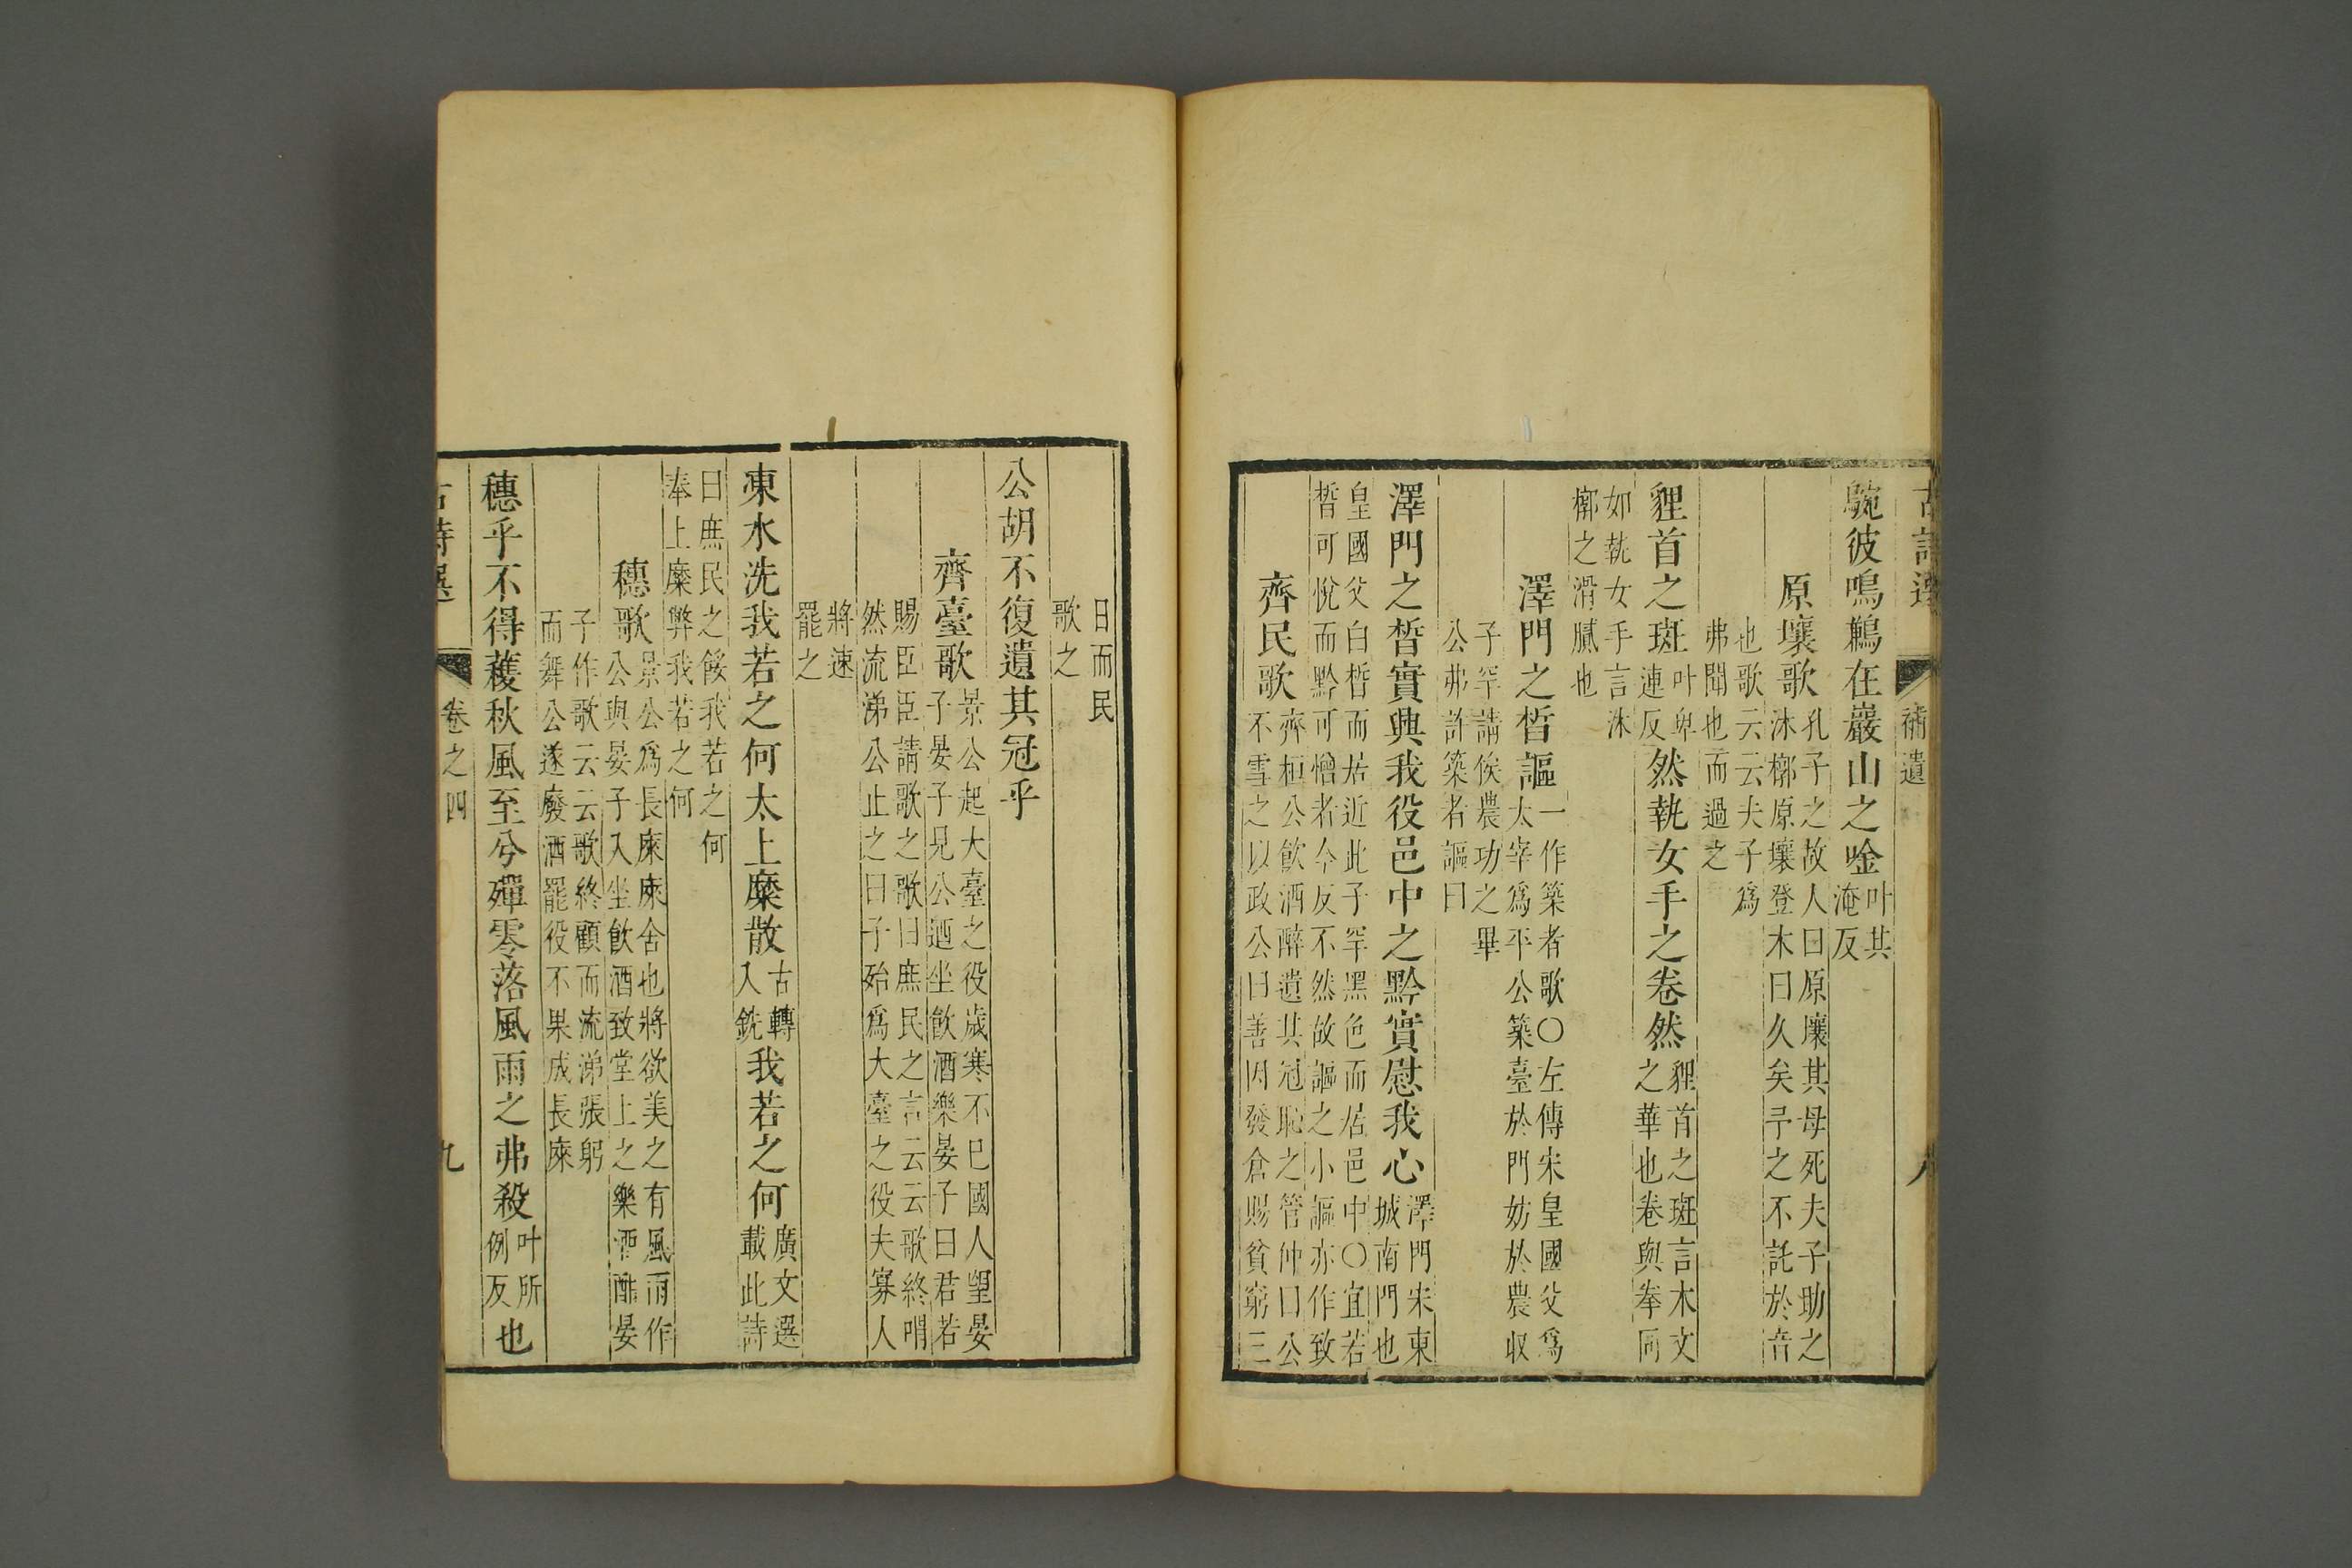 補遺
駞彼鳴鶼在巖山之唫叶其
淹反
原壤歌孔子之故人曰原壤其母死夫子助之
沐槨原壤登木曰久矣予之不託於音
也歌云云夫子爲
弗聞也而過之
貍首之斑叶卑
連反然執女手之卷然貍首之斑言木文
之華也卷與拳同
如執女手言沐
槨之滑膩也
澤門之晳謳一作築者歌○左傳宋皇國父爲
太宰爲平公築臺於門妨於農収
子罕請俟農功之畢
公弗許築者謳曰
澤門之晳實興我役邑中之黔實慰我心澤門宋東
城南門也
皇國父白晳而居近此子罕黑色而居邑中○宜若
晳可悅而黔可憎者今反不然故謳之小謳亦作致
齊民歌齊桓公飮酒醉遺其冠恥之管仲曰公
不雪之以政公曰善因發倉賜貧窮三
日而民
歌之
公胡不復遺其冠乎
齊臺歌景公起大臺之役歲寒不已國人望晏
子晏子見公迺坐飮酒樂晏子曰君若
賜臣臣請歌之歌曰庶民之言云云歌終喟
然流涕公止之曰子殆爲大臺之役夫寡人
將速
罷之
凍水洗我若之何太上糜散古轉
入銑我若之何廣文選
載此詩
曰庶民之餒我若之何
奉上糜弊我若之何
穗歌景公爲長庲庲舍也將欲美之有風雨作
公與晏子入坐飮酒致堂上之樂酒酣晏
子作歌云云歌終顧而流涕張躬
而舞公遂廢酒罷役不果成長庲
穗乎不得穫秋風至兮殫零落風雨之弗殺叶所
例反也
卷之四
九